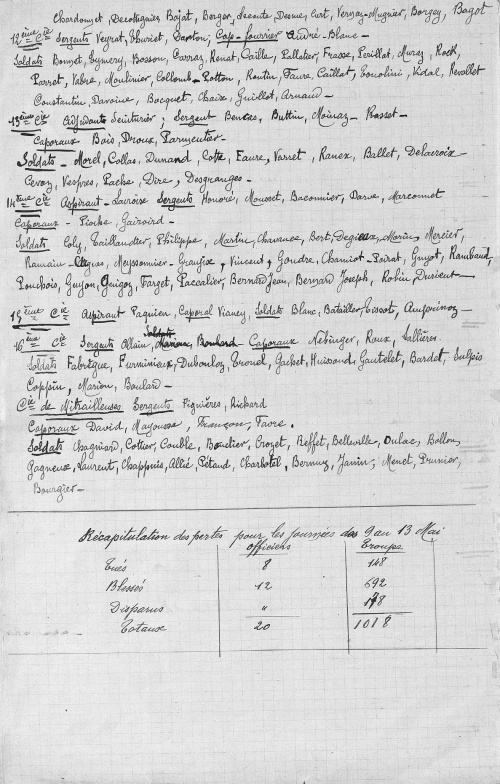 Chardonnet, Decotignies, Bajat, Berger, Lecoute, Desme, Curt, Vernay-Mugnier, Borgey, Bagot
12ème Cie Sergents Veyrat, Thuriet, Darton, Cap-fourrier André-Blanc -
Soldats Bonnet, Eymery, Bosson, Carraz, Renat, Caille, Palletier, Frasse, Perillat, Muraz, Rock,
Parret, Vabre, Moulinier, Collomb-Potton, Routin, Faure, Caillat, Toucolini, Vidal, Revollet
Constantin, Davoine, Bocquet, Chaix, Guillot, Arnaud -
13ème Cie Adjudants Scinturier; Sergent Bencas, Buttin, Moinaz - Rosset -
Caporaux Bois, Droux, Parmentier -
Soldats - Morel, Collas, Dunand, Cotte, Faure, Varret, Ranex, Ballet, Delacroix
Cevoz, Vespres, Pache, Dire, Desgranges -
14ème Cie Aspirant - Lavoise Sergents Honoré, Mousset, Baconnier, Darve, Marcomet
Caporaux - Pioche, Gairoird -
Soldats Coly, Taillandier, Philippe, Martin, Chavance, Bert, Degieux, Morin, Mercier,
Romain - Allignas, Meyssonnier - Graufix, Vincent, Goudre, Charriot - Poirat, Guyot, Rambaud,
Ponchois, Guyon, Guigoz, Farget, Paccalier, Bernard Jean, Bernard Joseph, Robin, Durieux -
15ème Cie Aspirant Paquien, Caporal Vianey, Soldats Blanc, Batailler, Tissot,
16ème Cie Sergents Allain, Soldats Marion, Boulard - Caporaux Nebinger, Roux, Sallières.
Soldats Fabrègue, Furminieux, Dubouloz, Tronel, Gachet, Huissoud, Gautelet, Bardet, Sulpis
Coppin, Marion, Boulard -
Cie de Mitrailleuses Sergents Fignières, Rickard
Caporaux David, Mayousse, Françone, Favre.
Soldats Chagniard, Cottier, Couble, Boudier, Crozet, Reffet, Belleville, Dulac, Bollon,
Gagneux, Laurent, Chappuis, Allié, Pétaud, Charbotel, Bernuz, Janin, Menet, Prunier,
Bourgier -
Récapitulation des pertes pour les journées des 9 au 13 Mai
officiers Troupe
Tués 8 148
Blessés 12 692
Disparus " 178
Totaux 20 1018